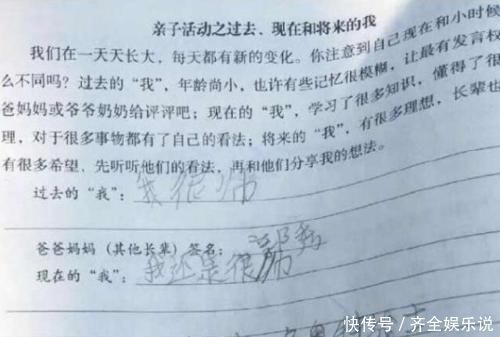 亲子活动之过去、现在和将来的我
我们在一天天长大，每天都有新的变化。你注意到自己现在和小时候
么不同吗？过去的“我”，年龄尚小，也许有些记忆很模糊，让最有发言权
爸妈妈或爷爷奶奶给评评吧；现在的“我”，学习了很多知识，懂得了很
理，对于很多事物都有了自己的看法；将来的“我”，有很多理想，长辈也
有很多希望，先听听他们的看法，再和他们分享我的想法。
过去的“我”：我很帅
爸爸妈妈（其他长辈）签名：
现在的“我”：我还是很帅
快传号／齐全娱乐说